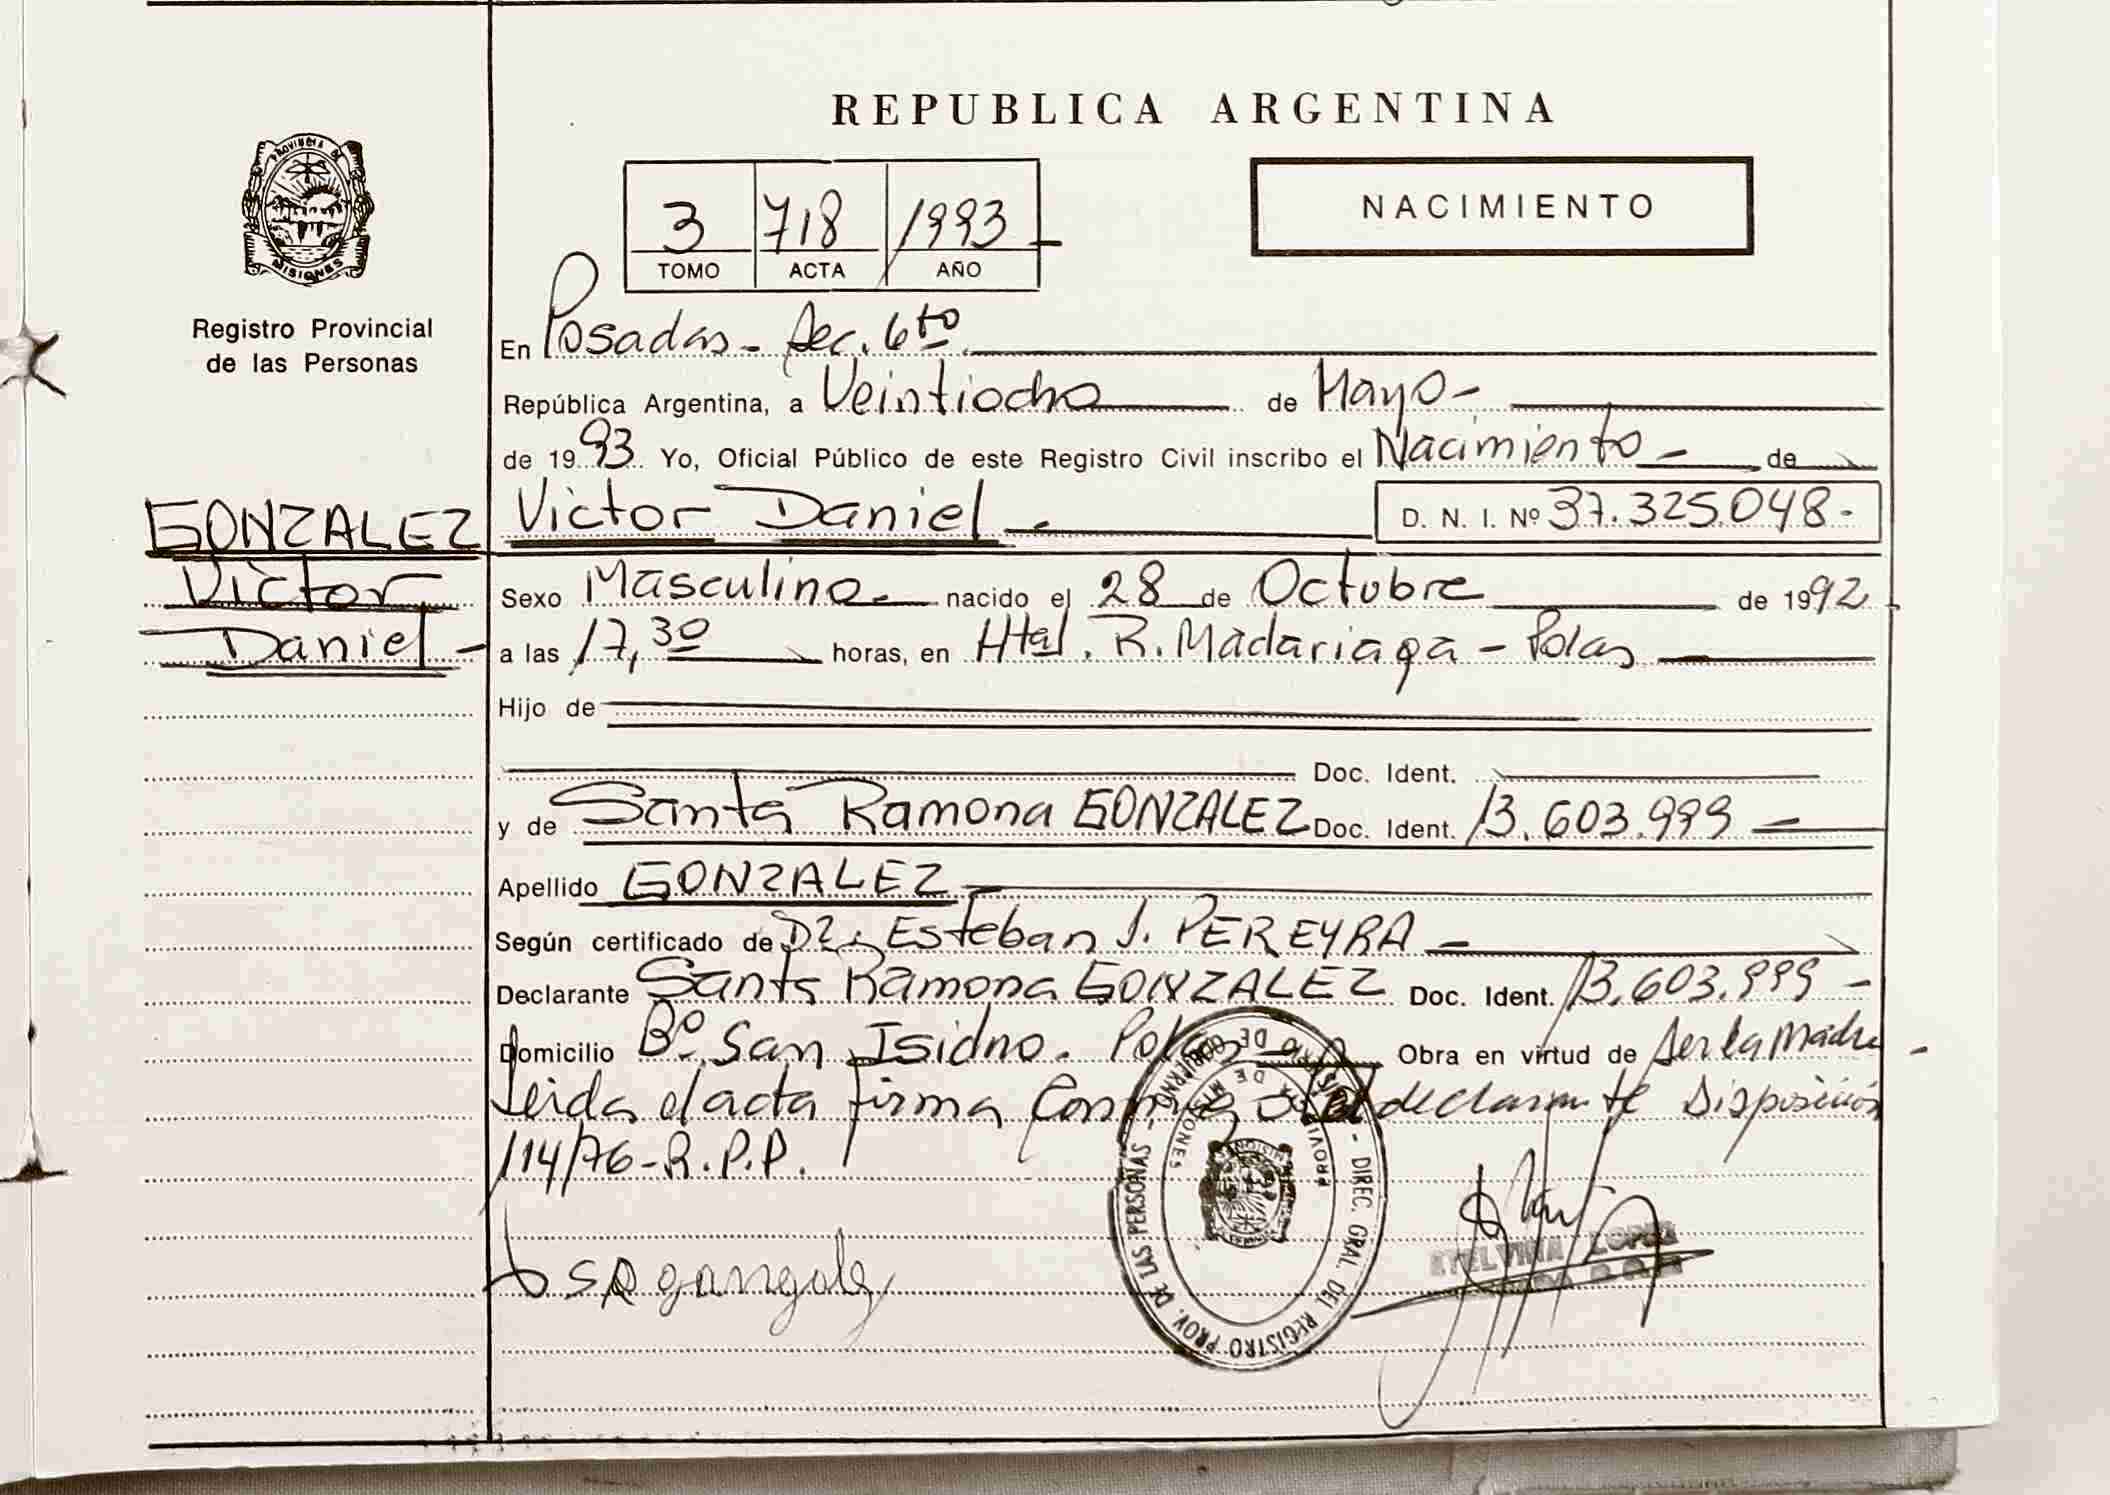 REPUBLICA ARGENTINA
PROVINCIA DE
MISIONES
Registro Provincial
de las Personas
3 718 1993
TOMO ACTA AÑO
NACIMIENTO
En Posadas - Sec. 6to
República Argentina, a Veintiocho de Mayo -
de 1993 Yo, Oficial Público de este Registro Civil inscribo el Nacimiento - de
GONZALEZ
Victor
Daniel -
Victor Daniel - D. N. I. Nº 37.325.048 -
Sexo Masculino - nacido el 28 de Octubre de 1992
a las 17,30 horas, en Htal. R. Madariaga - Pdas
Hijo de
Doc. Ident.
y de Santa Ramona GONZALEZ Doc. Ident. 13.603.999 -
Apellido GONZALEZ -
Según certificado de Dr. Esteban J. PEREYRA -
Declarante Santa Ramona GONZALEZ Doc. Ident. 13.603.999 -
Domicilio Bº San Isidro. Obra en virtud de Ser la Madre -
Leida el acta firma declarante Disposición
114/76 - R.P.P.
DIREC. GRAL. DEL REGISTRO PROV. DE LAS PERSONAS - MINISTERIO DE GOBIERNO
PROVINCIA DE MISIONES
ETELVINA LOPEZ